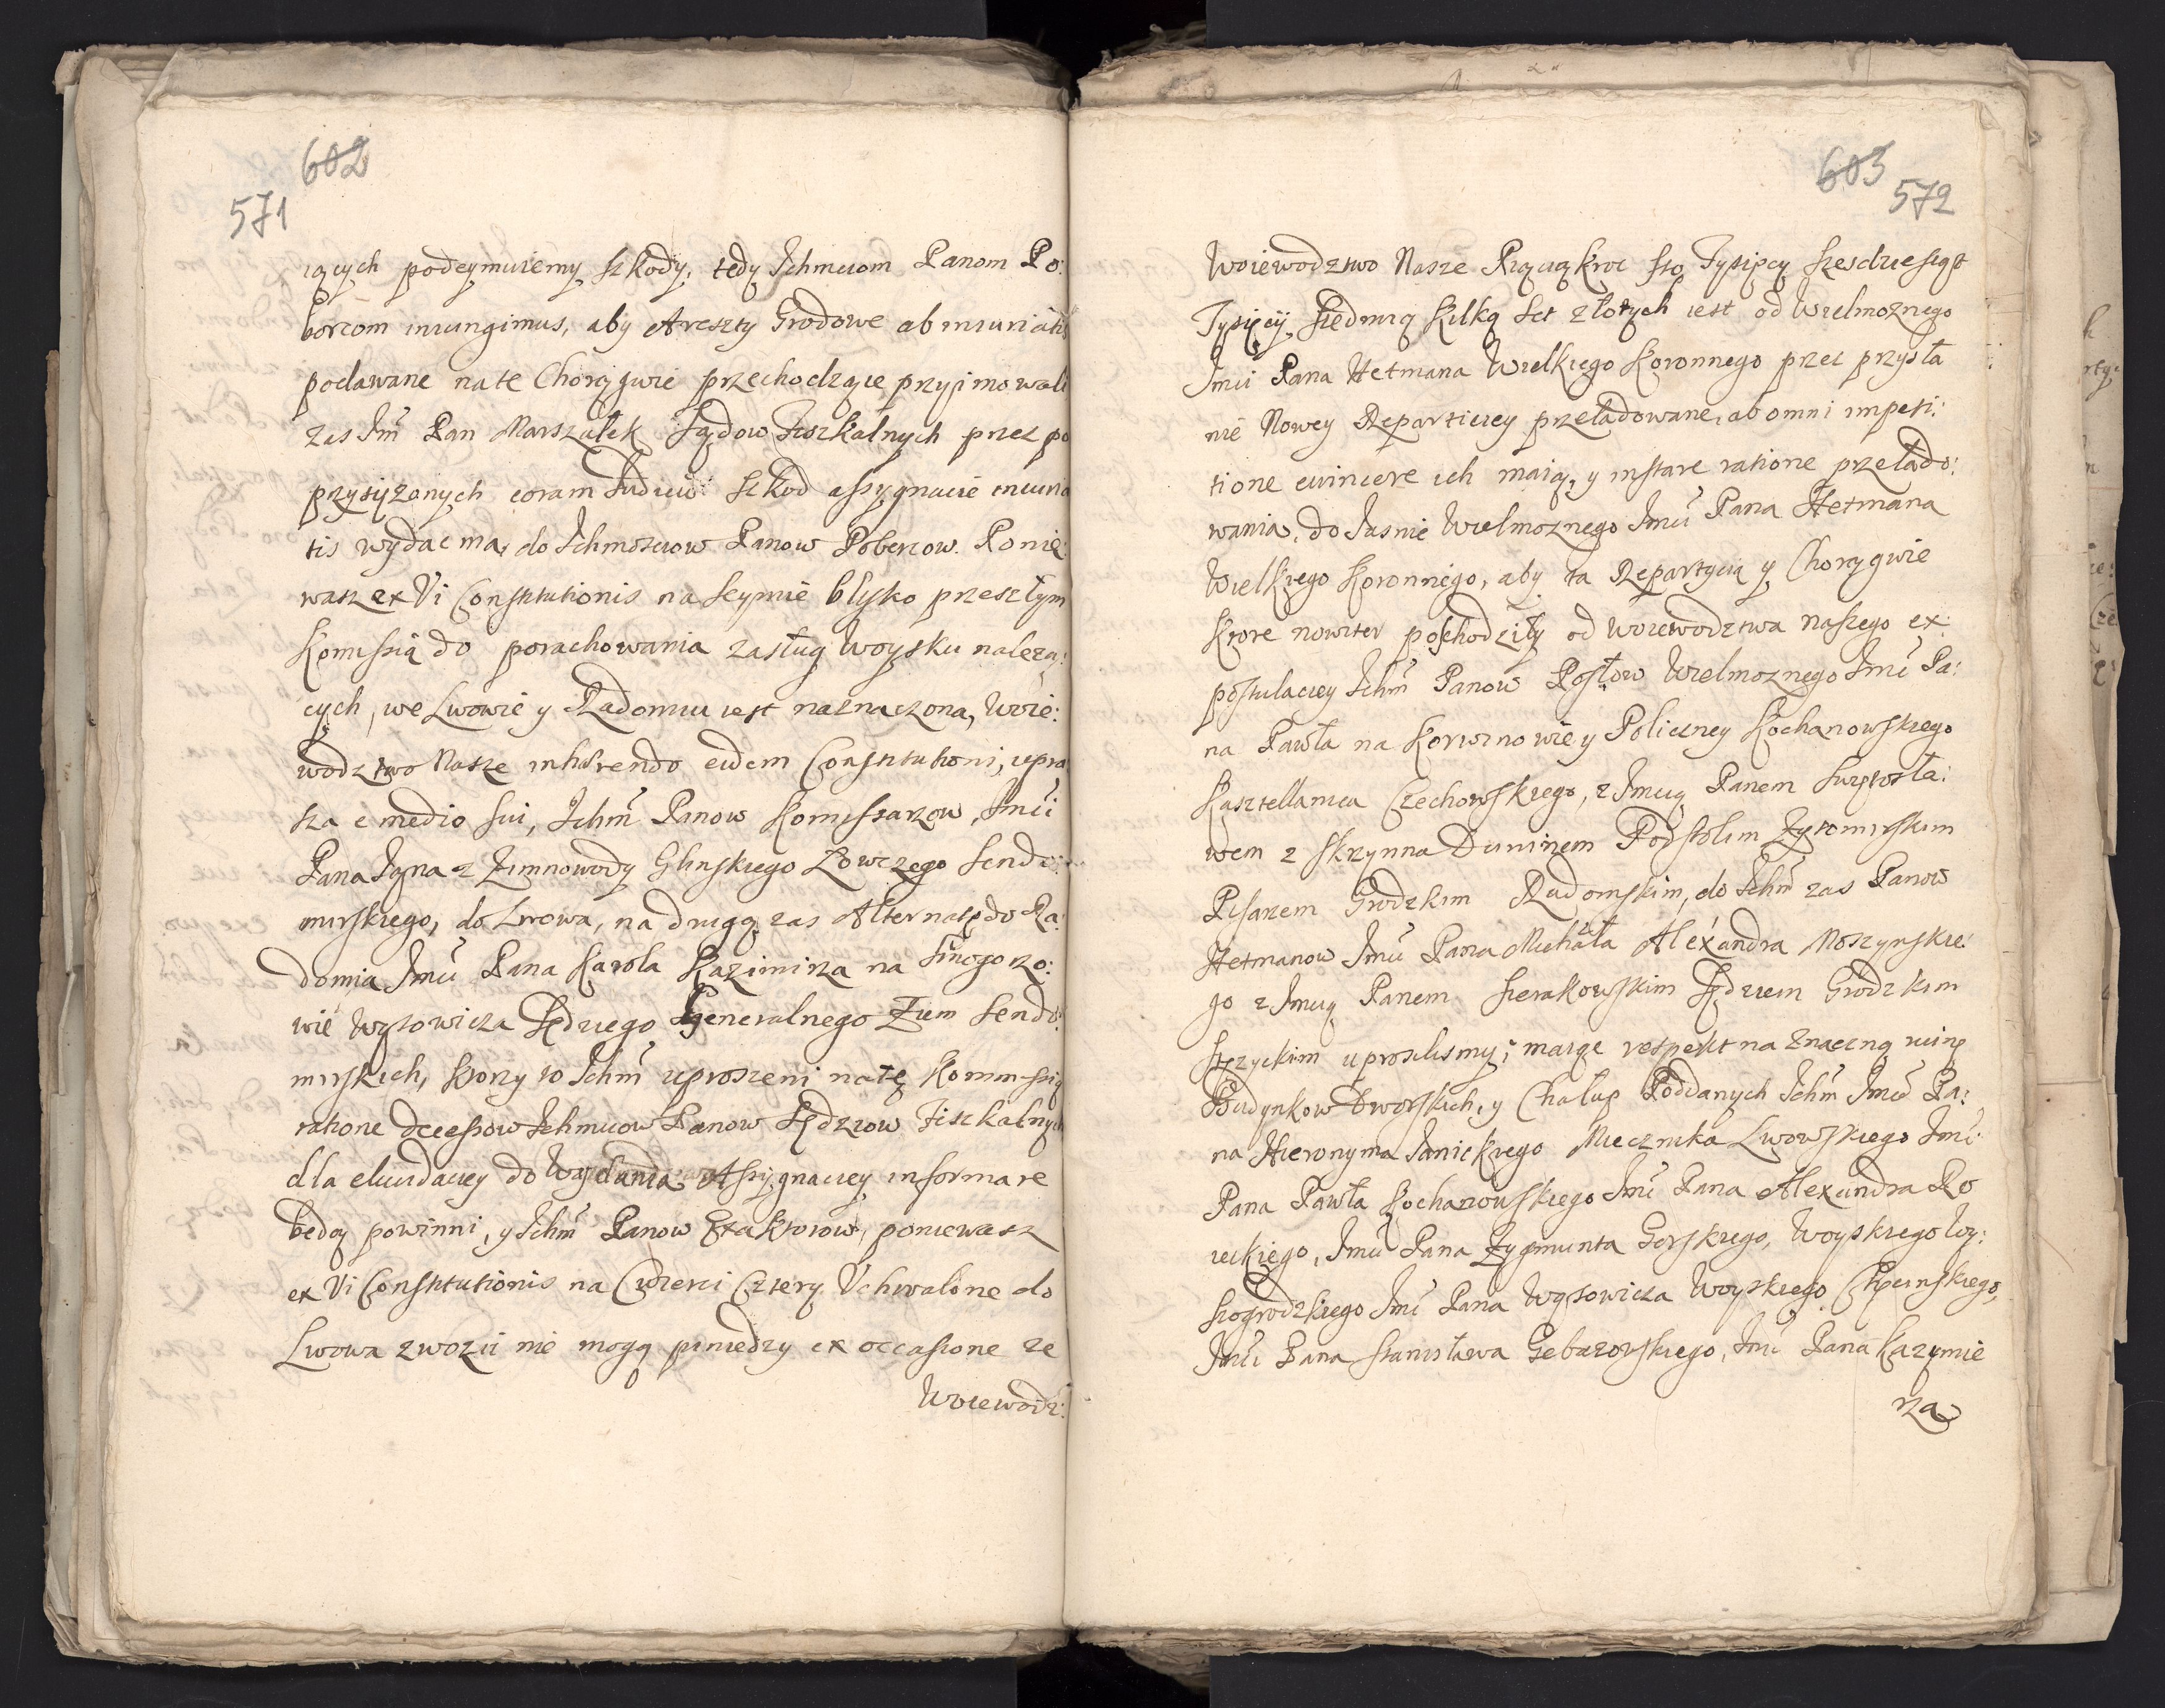 602
571
iących podeymuiemy szkody, tedy Ichmciom Panom Po:
borcom iniungimus, aby Areszty Grodowe ab iniuriatis
podawane na te Chorągwie przechodzące przyimowali
zas Jm̃ Pan Marszałek Sądow Fiszkalnych przez po
przysiężonych coram Iudicio szkod assygnacie iniuria
tis wydac ma, do Ichmosciow Panow Poborcow. Ponie:
wasz ex Vi Constitutionis na Seymie blisko przeszłym
Komissią do porachowania zasług Woysku należą:
cych, we Lwowie y Radomiu iest naznaczona, Woie:
wodztwo Nasze inhærendo eidem Constitutioni, upra
sza e medio sui, Ichm̃ Panow Komissarzow, Jmci
Pana Jana z Zimnowody Glinskiego Łowczego Sendo:
mirskiego, do Lwowa, na drugą zas Alternatę do Ra:
domia Jmci Pana Karola Kazimirza na Smogorzo:
wie Wąsowicza Sędziego Generalnego Ziem Sendo:
mirskich, ktorzy to Ichm̃ uproszeni na tę Kommissią
ratione decessow Ichmciow Panow Sędziow Fiszkalnych
dla elucidacyey do Wydania Assygnacyey informare
będą powinni, y Ichm̃ Panow Exaktorow, poniewasz
ex Vi Constitutionis na Cwierci Cztery Uchwalone do
Lwowa zwozić nie mogą pieniedzy ex occasione ze
Woiewodz:
603
572
Woiewodztwo Nasze Pięciąkroc sto Tysięcy szescdziesiąt
Tysięcy siedmią kilką set złotych iest od Wielmoznego
Jmci Pana Hetmana Wielkiego Koronnego przez przysła
nie Nowey Reparticiey przeładowane, ab omni impeti:
tione evincere ich maią, y instare ratione przełado:
wania, do Jasnie Wielmoznego Jmci Pana Hetmana
Wielkiego Koronnego, aby ta Repartycia y Chorągwie
ktore noviter poschodziły od Woiewodztwa naszego ex
postulacyey Ichm̃ Panow Posłow Wielmoznego Jmci Pa:
na Pawła na Korwinowie y Policzney Kochanowskiego
Kasztellanica Czechowskiego, z Jmcią Panem Swiętosła:
wem z Skrzynna Duninem Podstolim Zytomirskim
Pisarzem Grodzkim Radomskim, do Ichm̃ zas Panow
Hetmanow Jmci Pana Michała Alexandra Moszynskie:
go z Jmcią Panem Sierakowskim Sędziem Grodzkim
Stęzyckim uprosilismy; maiąc respekt na znaczną ruinę
Budynkow Dworskich, y Chałup Poddanych Ichm̃ Jmci Pa:
na Hieronyma Janickiego Miecznika Lwowskiego Jmci
Pana Pawła Kochanowskiego Jmci Pana Alexandra Ro
ieckiego, Jmci Pana Zygmunta Gorskiego, Woyskiego Wy:
szogrodzkiego Jmci Pana Wąsowicza Woyskiego
Jmci Pana Stanisława Gebarzowskiego, Jmci Pana Kazymie
rza